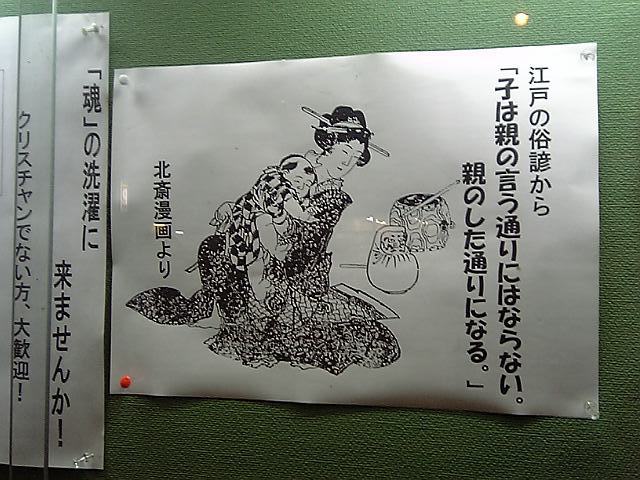 江戸の俗諺から
「子は親の言う通りにはならない。
親のした通りになる。」
北斎漫画より
「魂」の洗濯に
来ませんか！
クリスチャンでない方、大歓迎！